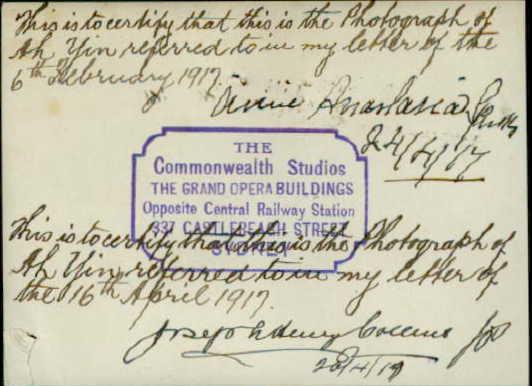 This is to certify that this is the Photograph of
Ah Yin referred to in my letter of the
6th February 1917
Annie Anastasia
24/4/17
THE
Commonwealth Studios
THE GRAND OPERA BUILDINGS
Opposite Central Railway Station
337 CASTLEREAGH STREET
SYDNEY
This is to certify that this is the Photograph of
Ah Yin referred to in my letter of
the 16th April 1917.
Joseph Henry Collins JP